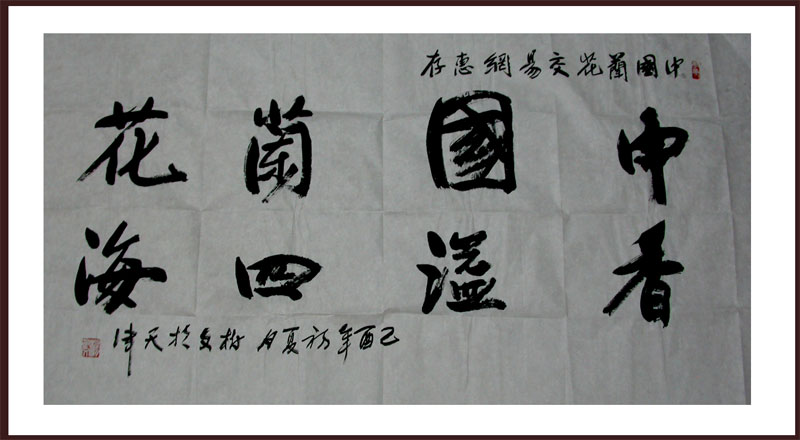 中國蘭花交易網惠存
中國蘭花
香溢四海
乙酉年初夏月於天津